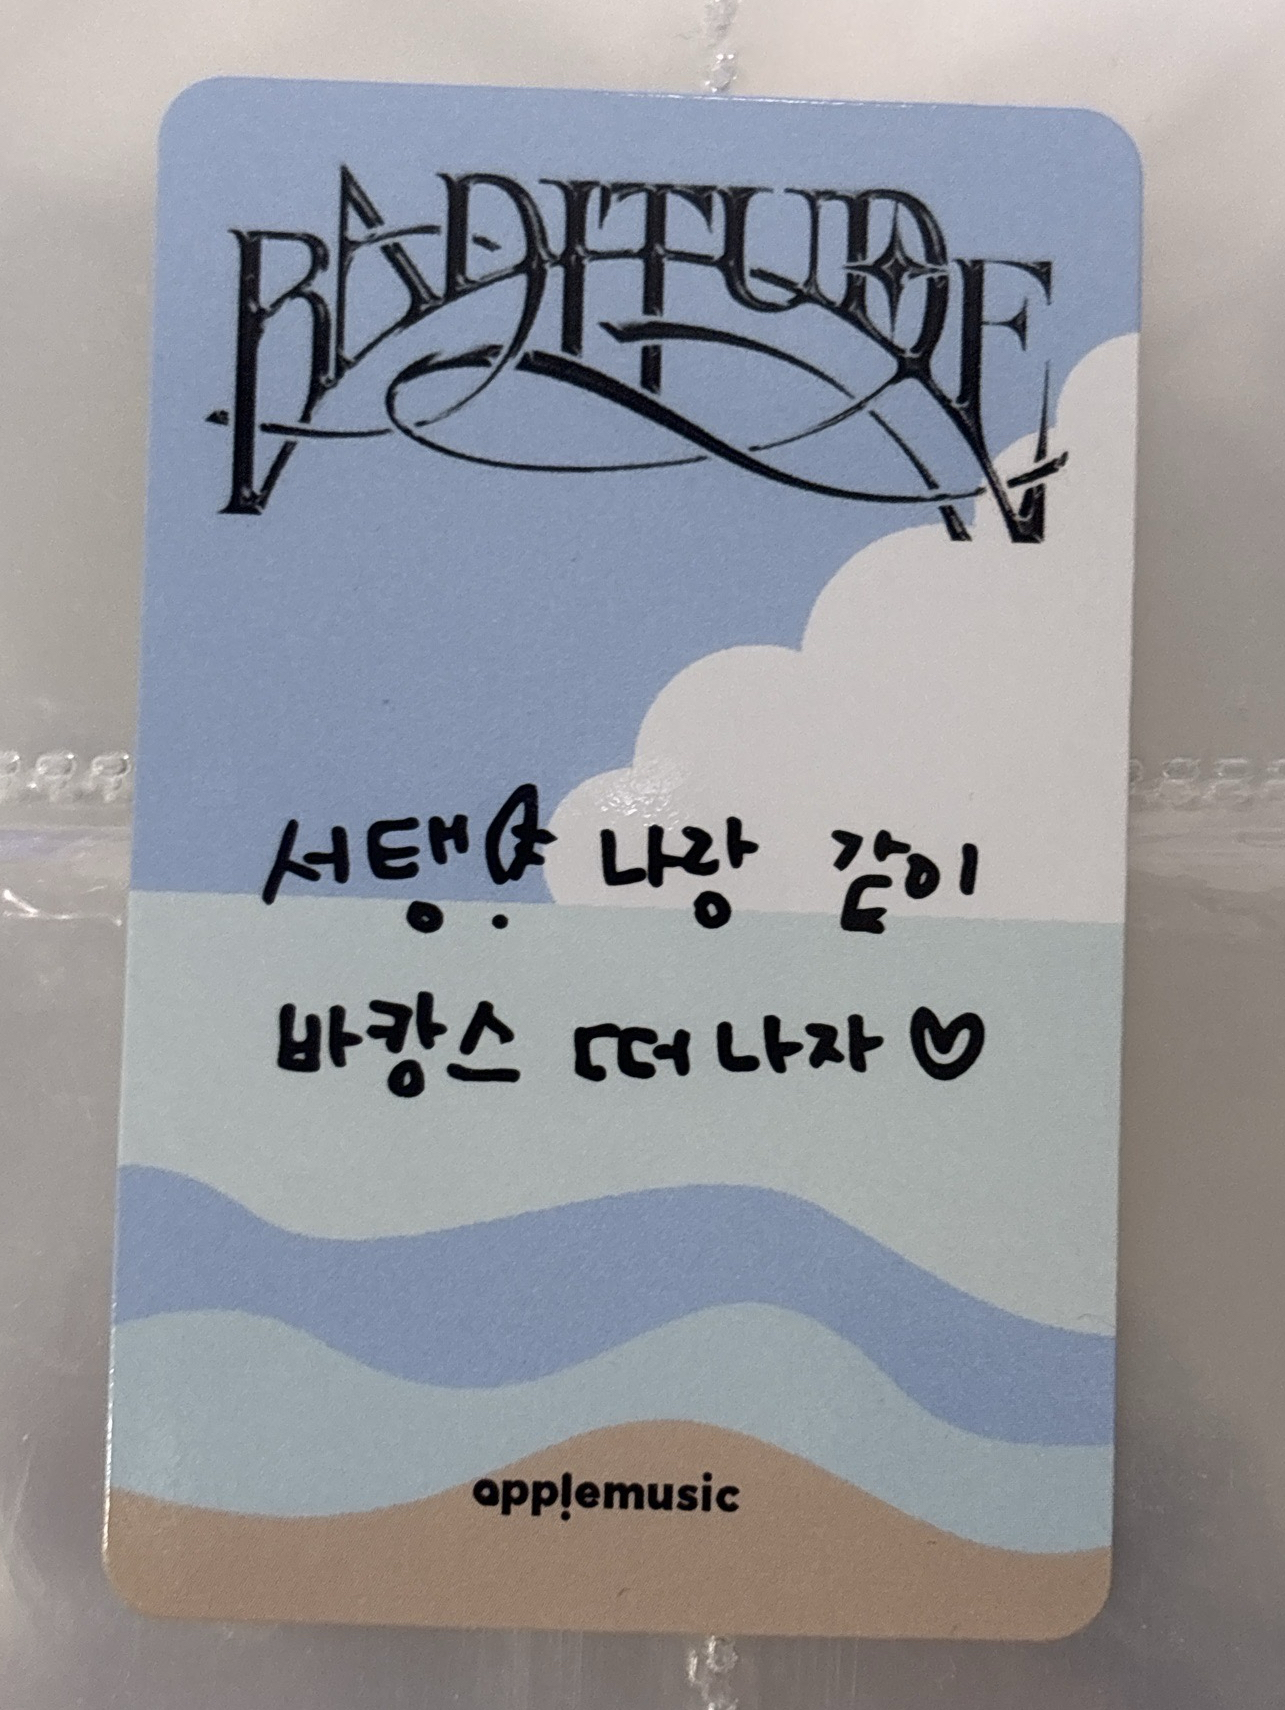 BADITUDE
서탱 나랑 같이
바캉스 떠나자♡
applemusic